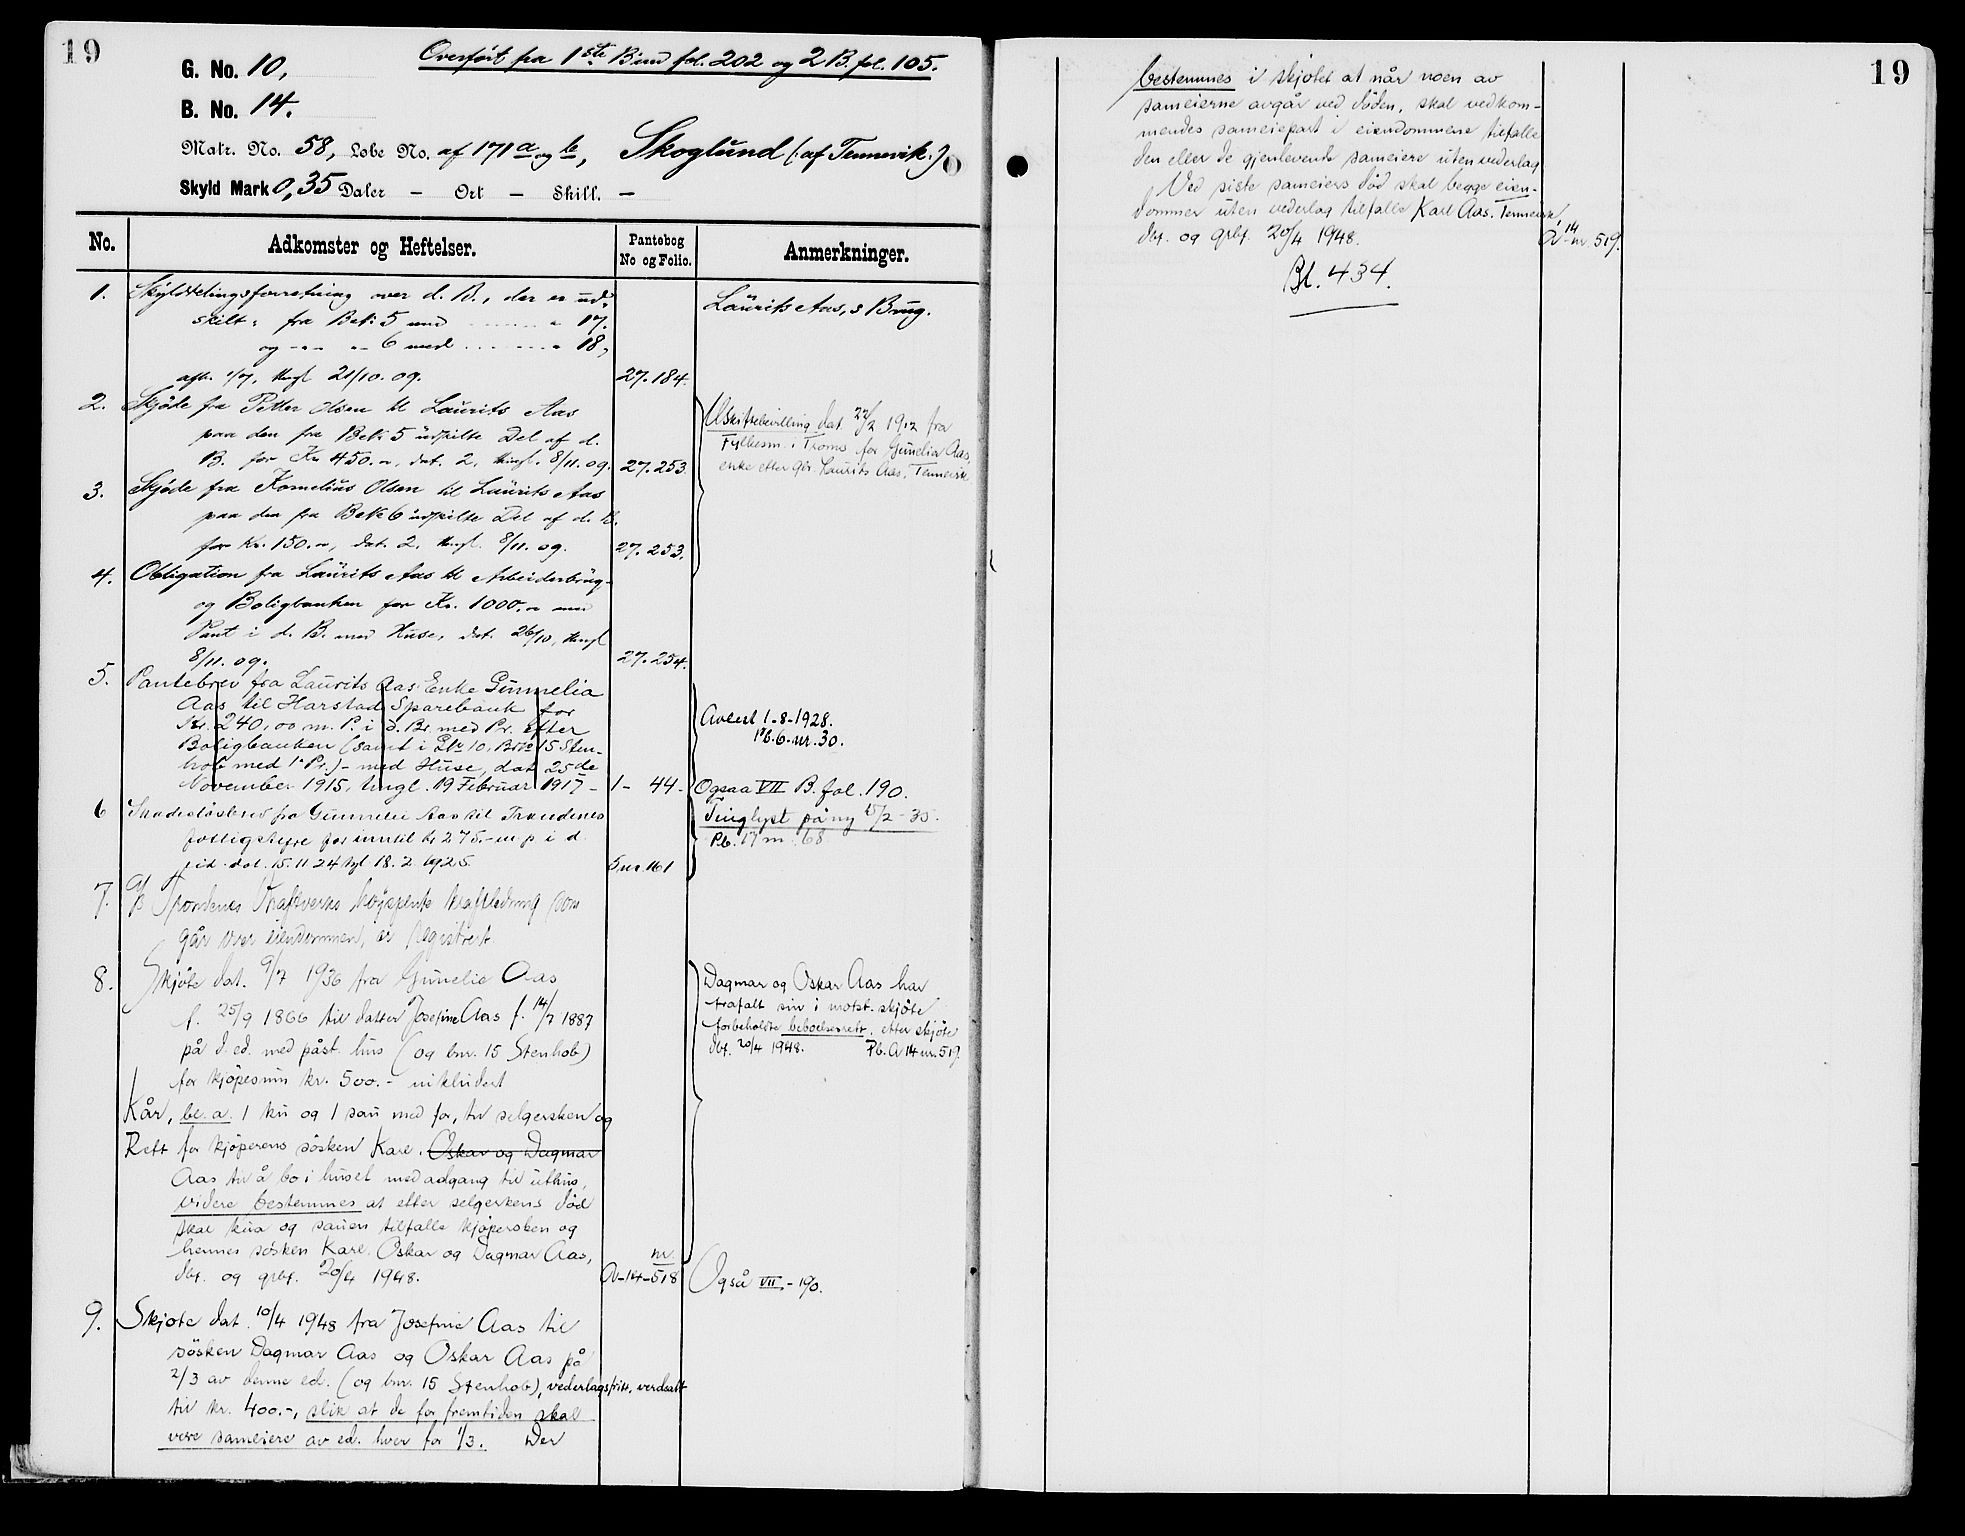 19
G. No. 10,
Overført fra 1ste Bind fol. 202 og 2 B. fol. 105.
B. No. 14.
Matr. No. 58, Løbe No. af 171 a og b, Skoglund (: af Tennevik :)
Skyld Mark 0,35 Daler - Ort - Skill. -
No. Adkomster og Heftelser. Pantebog No og Folio. Anmerkninger.
1. Skylddelingsforretning over d. B., der er ud-
skilt: fra Bek 5 med ........ " 17.
og - " - " - 6 med ........ " 18,
afh. 1/7, thingl 21/10. 09. 27. 184.
Laurits Aas, s Brug.
2. Skjøde fra Petter Olsen til Laurits Aas
paa den fra Bek 5 udskilte Del af d.
B. for Kr 450.", dat. 2, thingl. 8/11. 09. 27. 253.
3. Skjøde fra Kornelius Olsen til Laurits Aas
paa den fra Bek 6 udskilte Del af d. B.
for Kr. 150.", dat. 2. thingl. 8/11. 09. 27. 253.
Uskiftebevilling dat. 22/2 1912 fra
Fylkesm. i Troms for Gunelia Aas,
enke etter gbr. Laurits Aas, Tennevik
4. Obligation fra Laurits Aas til Arbeiderbrug-
og Boligbanken for Kr. 1000." med
Pant i d. B. med Huse, dat. 26/10, thingl
8/11. 09. 27. 254.
5. Pantebrev fra Laurits Aas Enke Gunnelia
Aas til Harstad Sparebank for
Kr. 240,00 m. P. i d. Br. med Pr. efter
Boligbanken (samt i Gno 10, Brno 15 Sten-
hob med 1ste Pr.) - med Huse, dat 25de
November 1915, tingl. 19 Februar 1917 - 1 - 44 -
Avlest 1-8-1928.
Pb. 6. nr. 30.
Ogsaa VII B. fol. 190.
6 Skadesløsbrev fra Gunnelie Aas til Trondenes
fattigstyre for inntil kr 275,- m p i d
eid. dat. 15.11 24 tgl 18. 2 1925. 5 nr. 161
Tinglyst på ny 15/2 - 35.
Pb. 17 nr. 68
7. Trondenes Kraftverks høispente kraftledning som
går over eiendommen, er registrert.
8. Skjøte dat. 9/7 1936 fra Gunelie Aas
f. 25/9 1866 til datter Josefine Aas f. 14/7 1887
på d. ed. med påst. hus (og bnr. 15 Stenhob)
for kjøpesum kr. 500.- inkludert
Kår, bl. a. 1 ku og 1 sau med for, til selgersken og
Rett for kjøperens søsken Karl, Oskar og Dagmar
Aas til å bo i huset med adgang til uthus,
videre bestemmes at etter selgerskens død
skal kua og sauen tilfalle kjøpersken og
hennes søsken Karl, Oskar og Dagmar Aas,
dbf. og grbf. 20/4 1948. A-14-nr. 518
Dagmar og Oskar Aas har
frafalt sin i motst. skjøte
forbeholdte beboelsesrett, etter skjøte
dbf. 20/4 1948. Pb. A 14 nr. 519.
Også VII - 190.
9. Skjøte dat. 10/4 1948 fra Josefine Aas til
søsken Dagmar Aas og Oskar Aas på
2/3 av denne ed. (og bnr. 15 Stenhob), vederlagsfritt, verdsatt
til kr. 400.-, slik at de for fremtiden skal
være sameiere av ed. hver for 1/3. Der
19
bestemmes i skjøtet at når noen av
sameierne avgår ved døden, skal vedkom-
mendes sameiepart i eiendommene tilfalle
den eller de gjenlevende sameiere uten vederlag
Ved siste sameiers død skal begge eien-
dommer uten vederlag tilfalle Karl Aas, Tennevik,
dbf. og grbf. 20/4 1948. A-14-nr. 519.
Bl. 434.